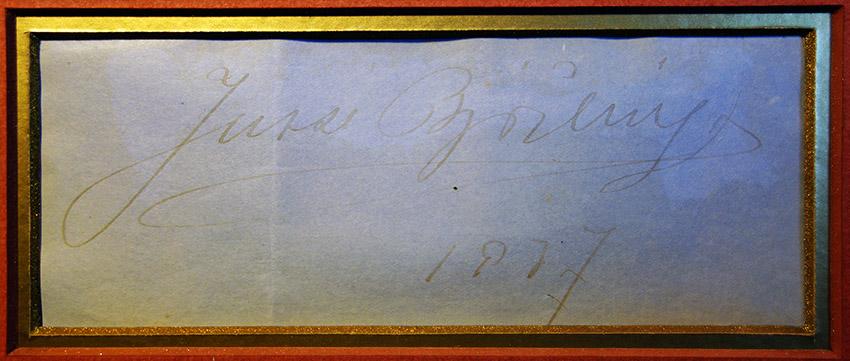 Jussi Björling
1937